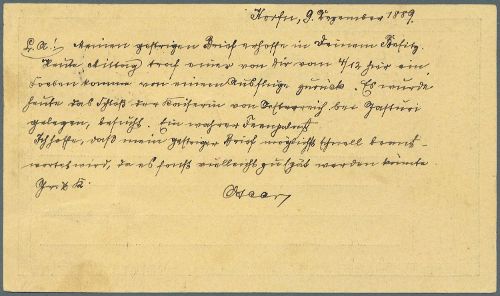 Korfu, 9. Dezember 1889.
L. A.! Meinen gestrigen Brief erhoffe in Deinem Besitz.
Heute Mittag traf einer von dir vom 4/12 hier ein.
Soeben komme von einem Ausfluge zurück. Es wurde
heute das Schloß der Kaiserin von Oesterreich bei Gasturi
gelegen, besucht. Ein wahrer Feenpalast.
Ich hoffe, daß mein gestriger Brief möglichst schnell beant-
wortet wird, da es sonst vielleicht zu spät werden könnte.
Gruß K.